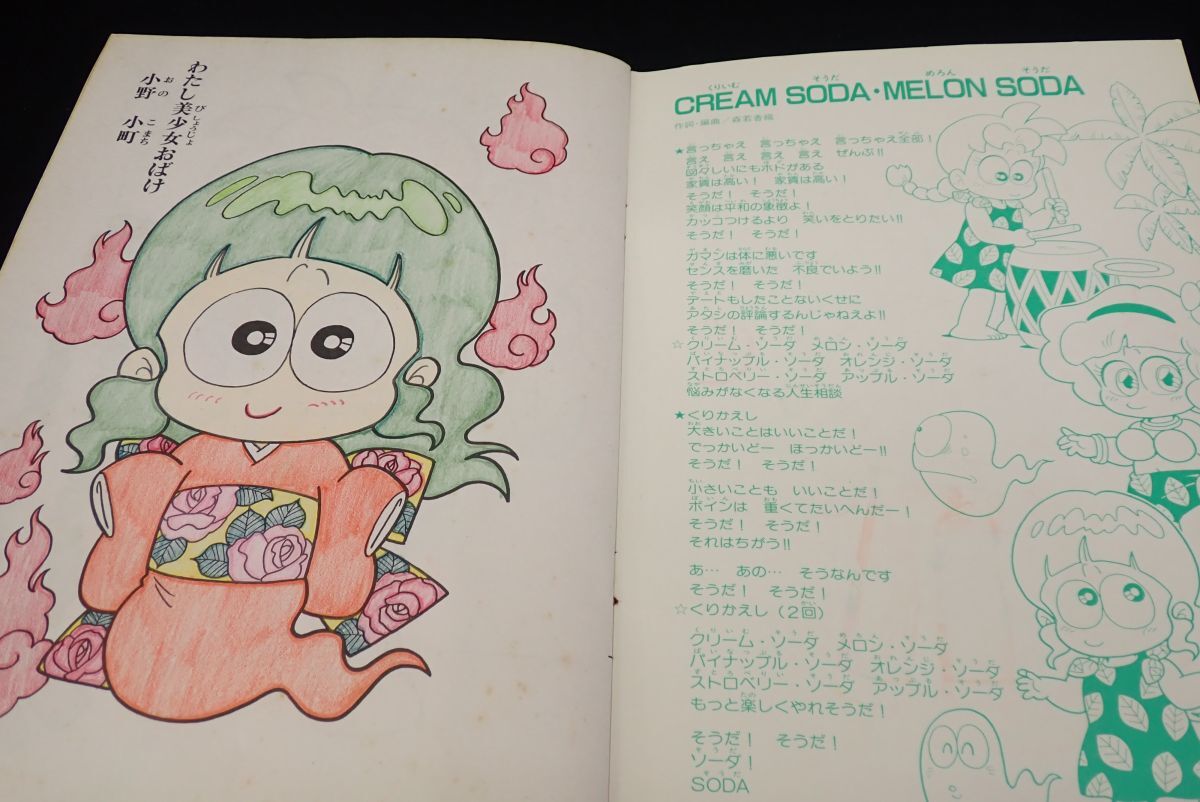 わたし美少女おばけ
びしょうじょ
小野 小町
おの こまち
くりいむ そうだ めろん そうだ
CREAM SODA・MELON SODA
作詞・編曲／森若香織
★言っちゃえ 言っちゃえ 言っちゃえ全部！
言え 言え 言え 言え ぜんぶ!!
図々しいにもホドがある
家賃は高い！ 家賃は高い！
そうだ！ そうだ！
笑顔は平和の象徴よ！
カッコつけるより 笑いをとりたい!!
そうだ！ そうだ！
ガマンは体に悪いです
センスを磨いた 不良でいよう!!
そうだ！ そうだ！
デートもしたことないくせに
アタシの評論するんじゃねえよ!!
そうだ！ そうだ！
☆クリーム・ソーダ メロン・ソーダ
パイナップル・ソーダ オレンジ・ソーダ
ストロベリー・ソーダ アップル・ソーダ
悩みがなくなる人生相談
★くりかえし
大きいことはいいことだ！
でっかいどー ほっかいどー!!
そうだ！ そうだ！
小さいことも いいことだ！
ボインは 重くてたいへんだー！
そうだ！ そうだ！
それはちがう!!
あ… あの… そうなんです
そうだ！ そうだ！
☆くりかえし（2回）
クリーム・ソーダ メロン・ソーダ
パイナップル・ソーダ オレンジ・ソーダ
ストロベリー・ソーダ アップル・ソーダ
もっと楽しくやれそうだ！
そうだ！ そうだ！
ソーダ！
そうだ
SODA